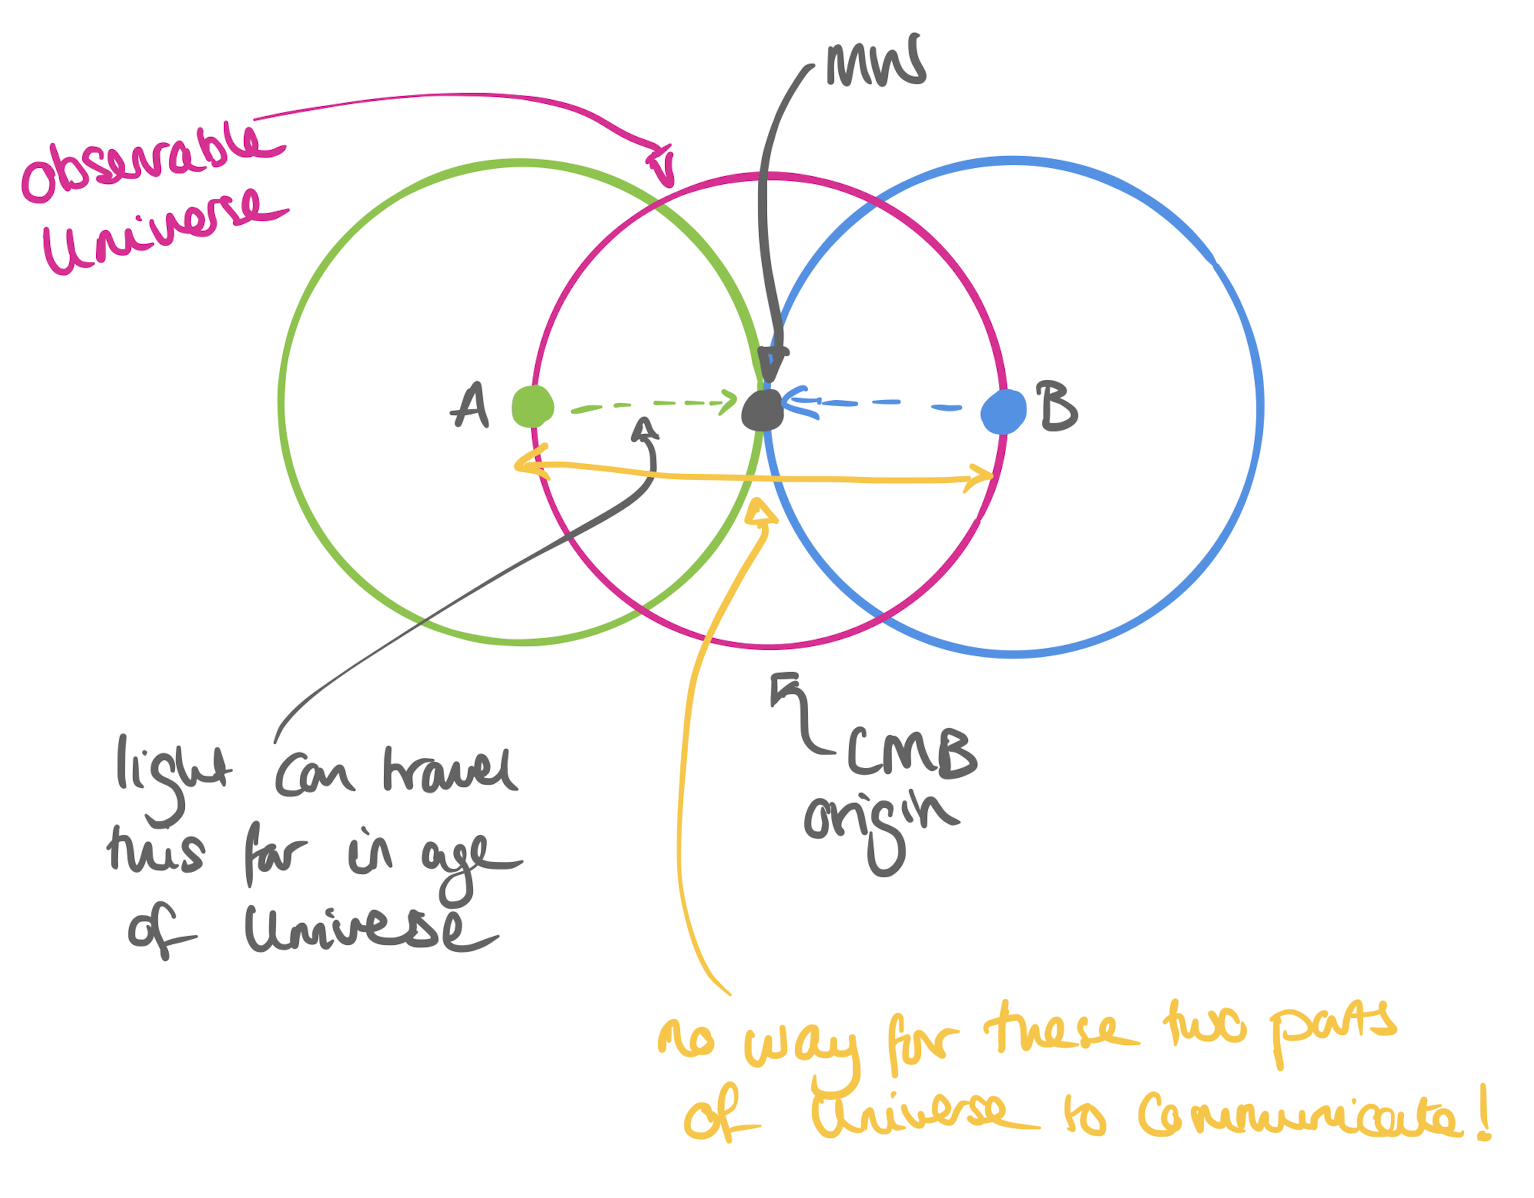 MW
Observable
Universe
A
B
CMB
origin
light can travel
this far in age
of Universe
no way for these two parts
of Universe to communicate!